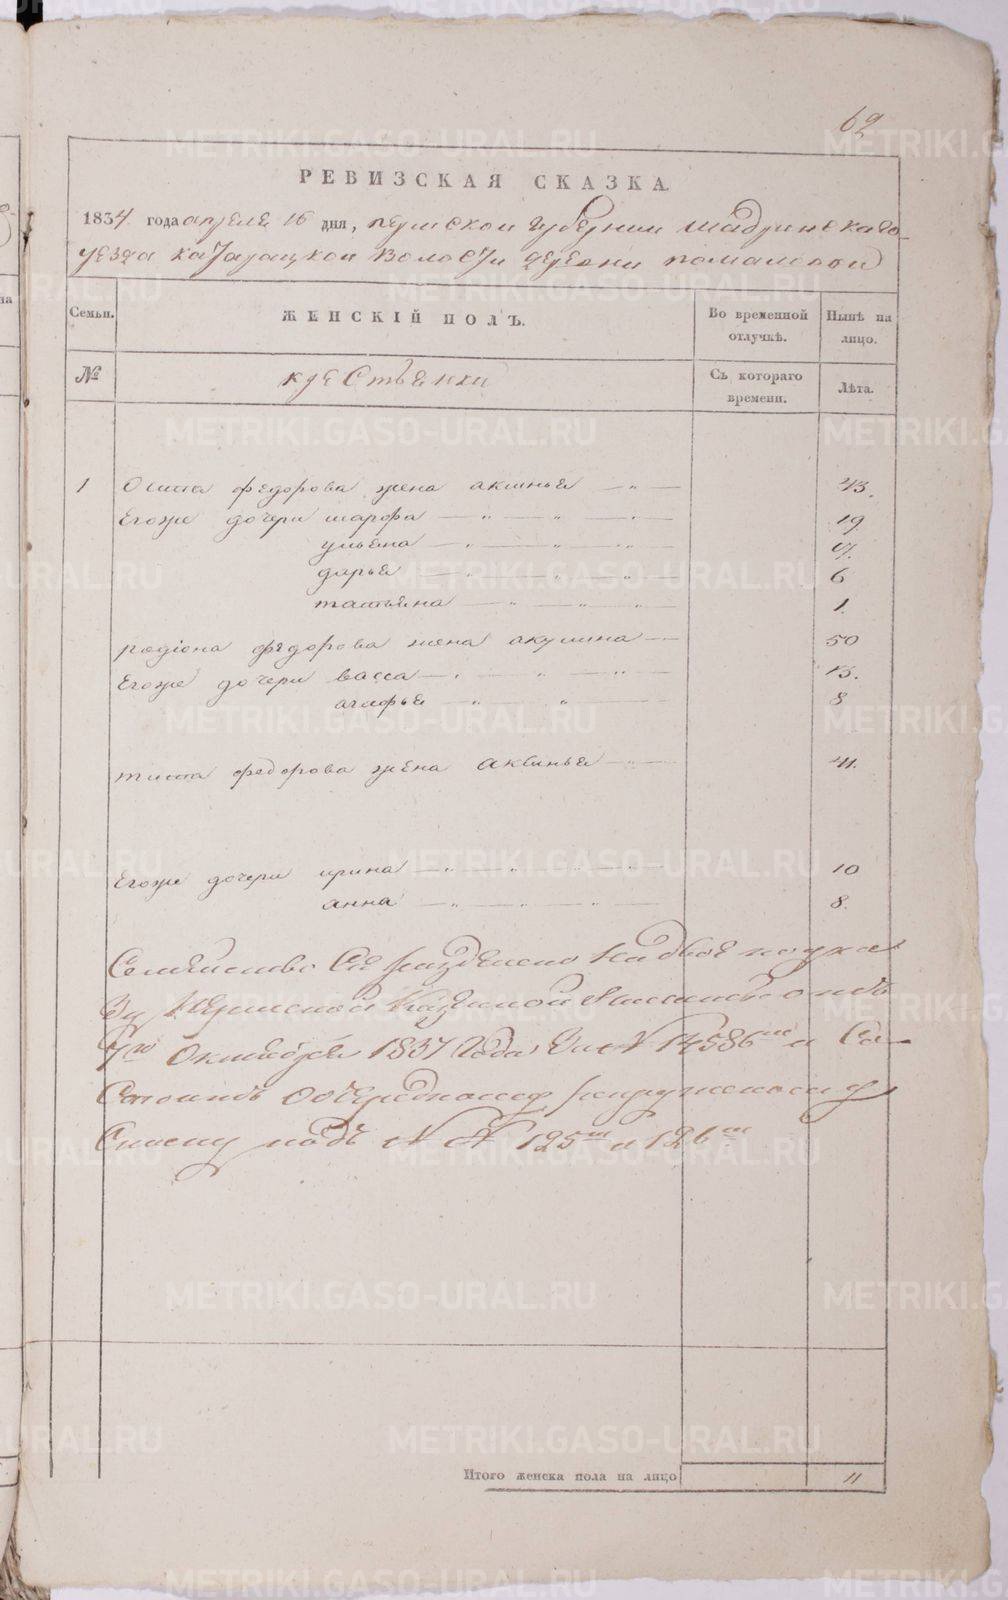 62
РЕВИЗСКАЯ СКАЗКА.
1834 года апреле 16 дня, пермской губернии шадринскаго
уезда катарацкой волости деревни
Семьи. ЖЕНСКІЙ ПОЛЪ. Во временной отлучкѣ. Нынѣ на лицо.
№ крестьянки Съ котораго времени. Лѣта.
1 Осипа федорова жена аксинья 43.
Егоже дочери марфа 19
ульяна
дарья 6
татьяна 1.
родіона федорова жена акулина 50
Егоже дочери васса 15.
агафья 8
тита федорова жена аксинья 41.
Егоже дочери ирина 10
анна 8.
Семейство Сіе разделено надвое по указу
Пермской Казенной Палаты отъ
7го Октября 1837 Года за № 14586м и Со-
Стоитъ
Списку подъ № № 125м и 126м
Итого женска пола на лицо 11
METRIKI.GASO-URAL.RU